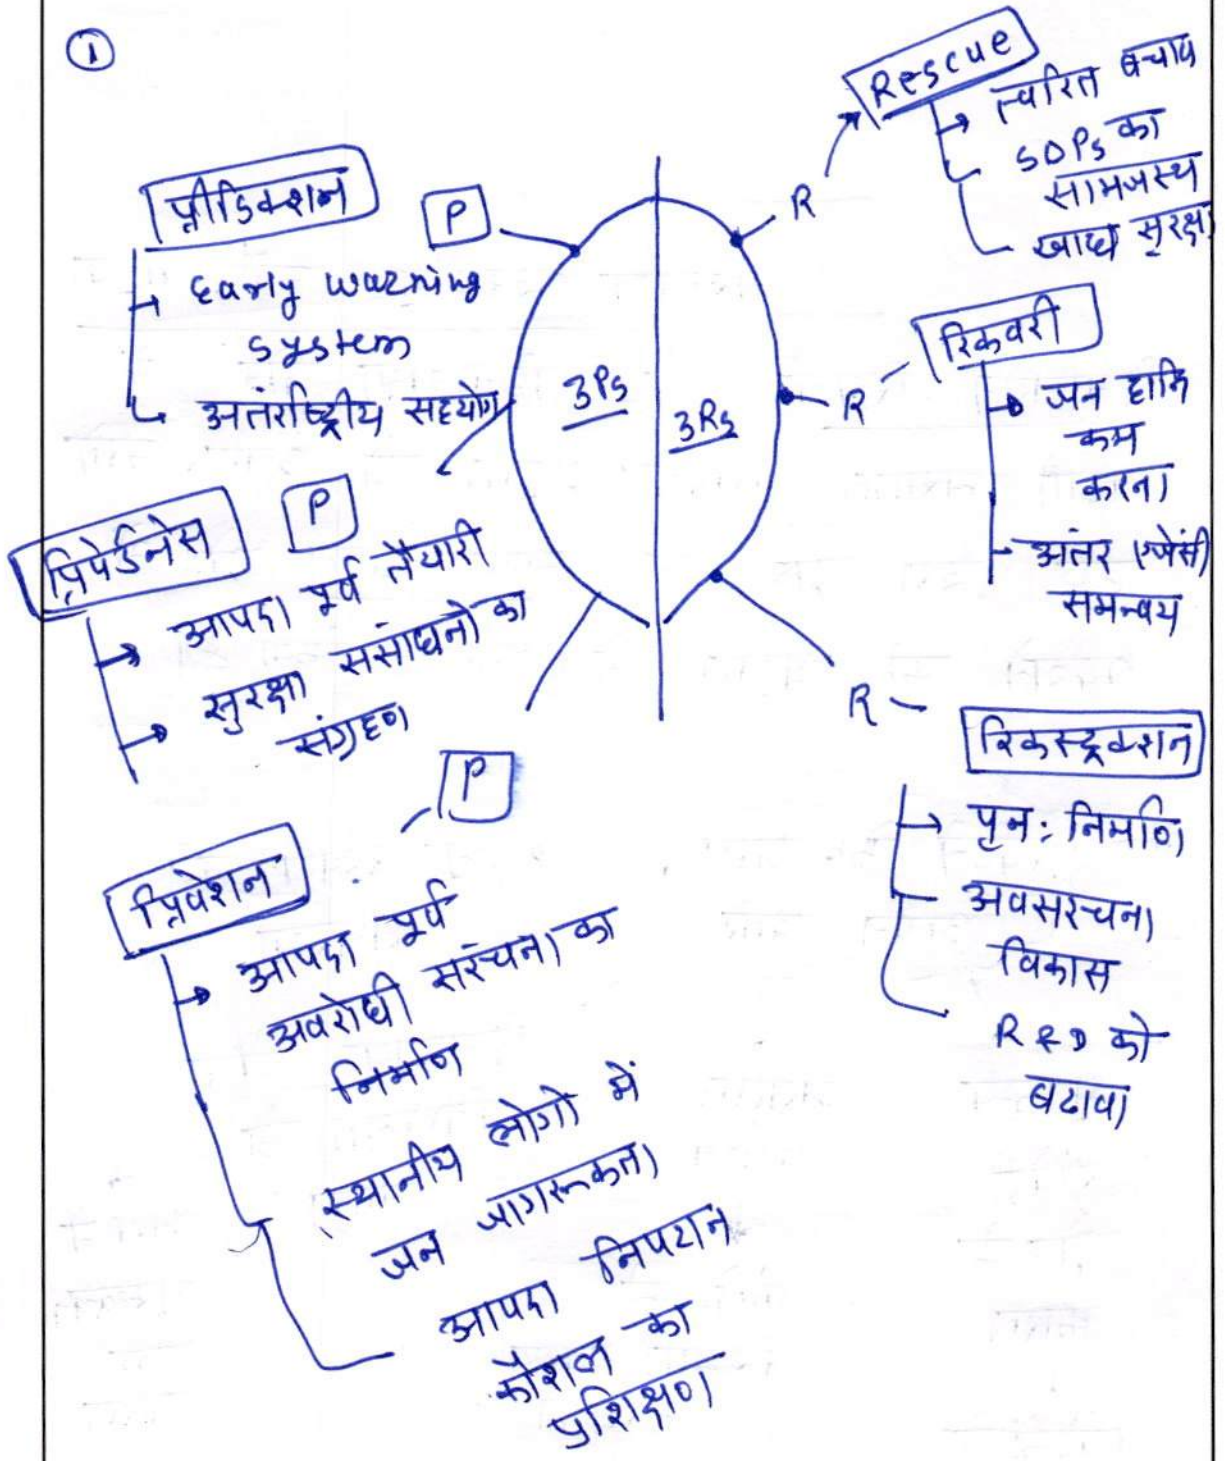 1
प्रीडिक्शन
P
Early warning
system
अतंर्राष्ट्रीय सहयोग
प्रिपेर्डनेस
P
आपदा पूर्व तैयारी
सुरक्षा ससांधनो का
संग्रहण
P
प्रिवेशन
आपदा पूर्व
अवरोधी सरंचना का
निर्माण
स्थानीय लोगो में
जन जागरूकता
आपदा निपटान
कौशल का
प्रशिक्षण
3Ps
3Rs
R
Rescue
त्वरित बचाव
SOPs का
सामजस्य
खाद्य सुरक्षा
R
रिकवरी
जन हानि
कम
करना
अंतर एजेंसी
समन्वय
R
रिकस्ट्रक्शन
पुन: निर्माण
अवसरचना
विकास
R & D को
बढावा